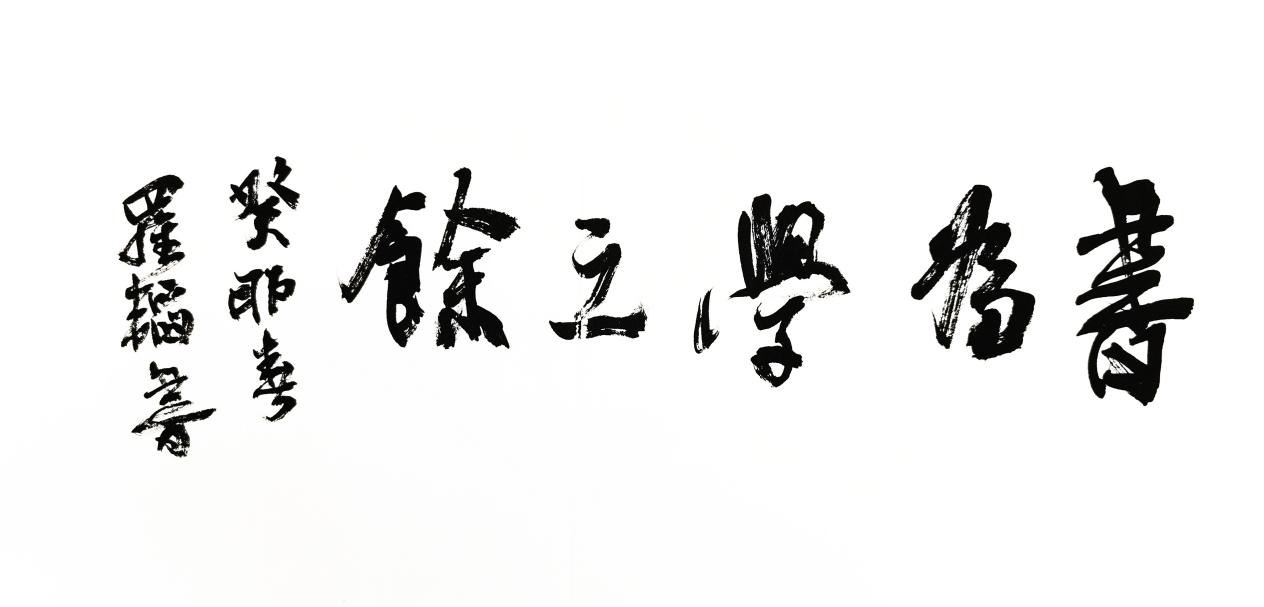 書為學之餘
癸卯春
羅韜書